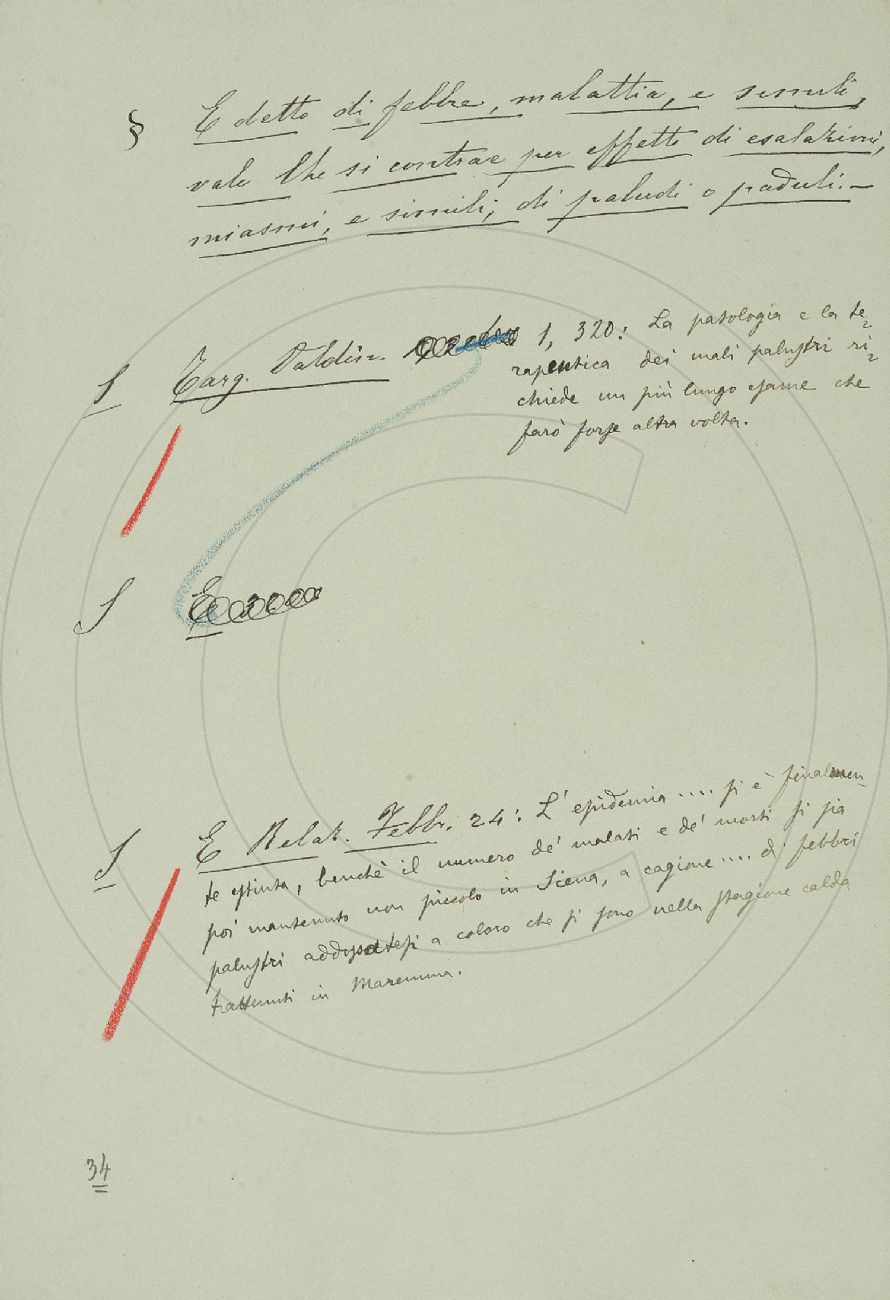 § E detto di febbre, malattia, e simili,
vale Che si contrae per effetto di esalazioni,
miasmi, e simili, di paludi o paduli. –
S Targ. Valdin. 1, 320: La patologia e la te=
rapeutica dei mali palustri ri=
chiede un più lungo esame che
farò forse altra volta.
S E
S E Relaz. Febbr. 24: L' epidemia .... si è finalmen-
te estinta, benchè il numero de' malati e de' morti si sia
poi mantenuto non piccolo in Siena, a cagione .... di febbri
palustri addossatesi a coloro che si sono nella stagione calda
trattenuti in Maremma.
34